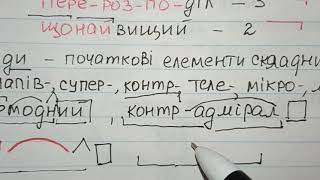 ПЕРЕ-РОЗ-ПО-ДІЛ - 3
ЩОНАЙВИЩИЙ - 2
- початкові елементи складни
супер-, контр- теле- мікро-,
модний контр-адмірал